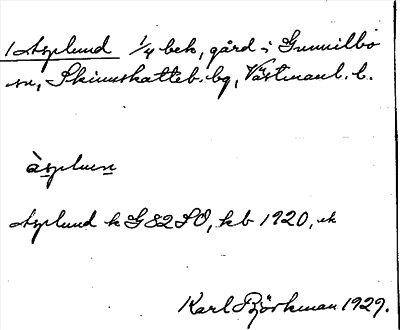 Asplund 1/4 beh, gård i Gunnilbo
sn, Skinnskatteb. bg, Västmanl. l.
àspluṉ
Asplund k G 82 SO, kb 1920, ek
Karl Björkman 1929.